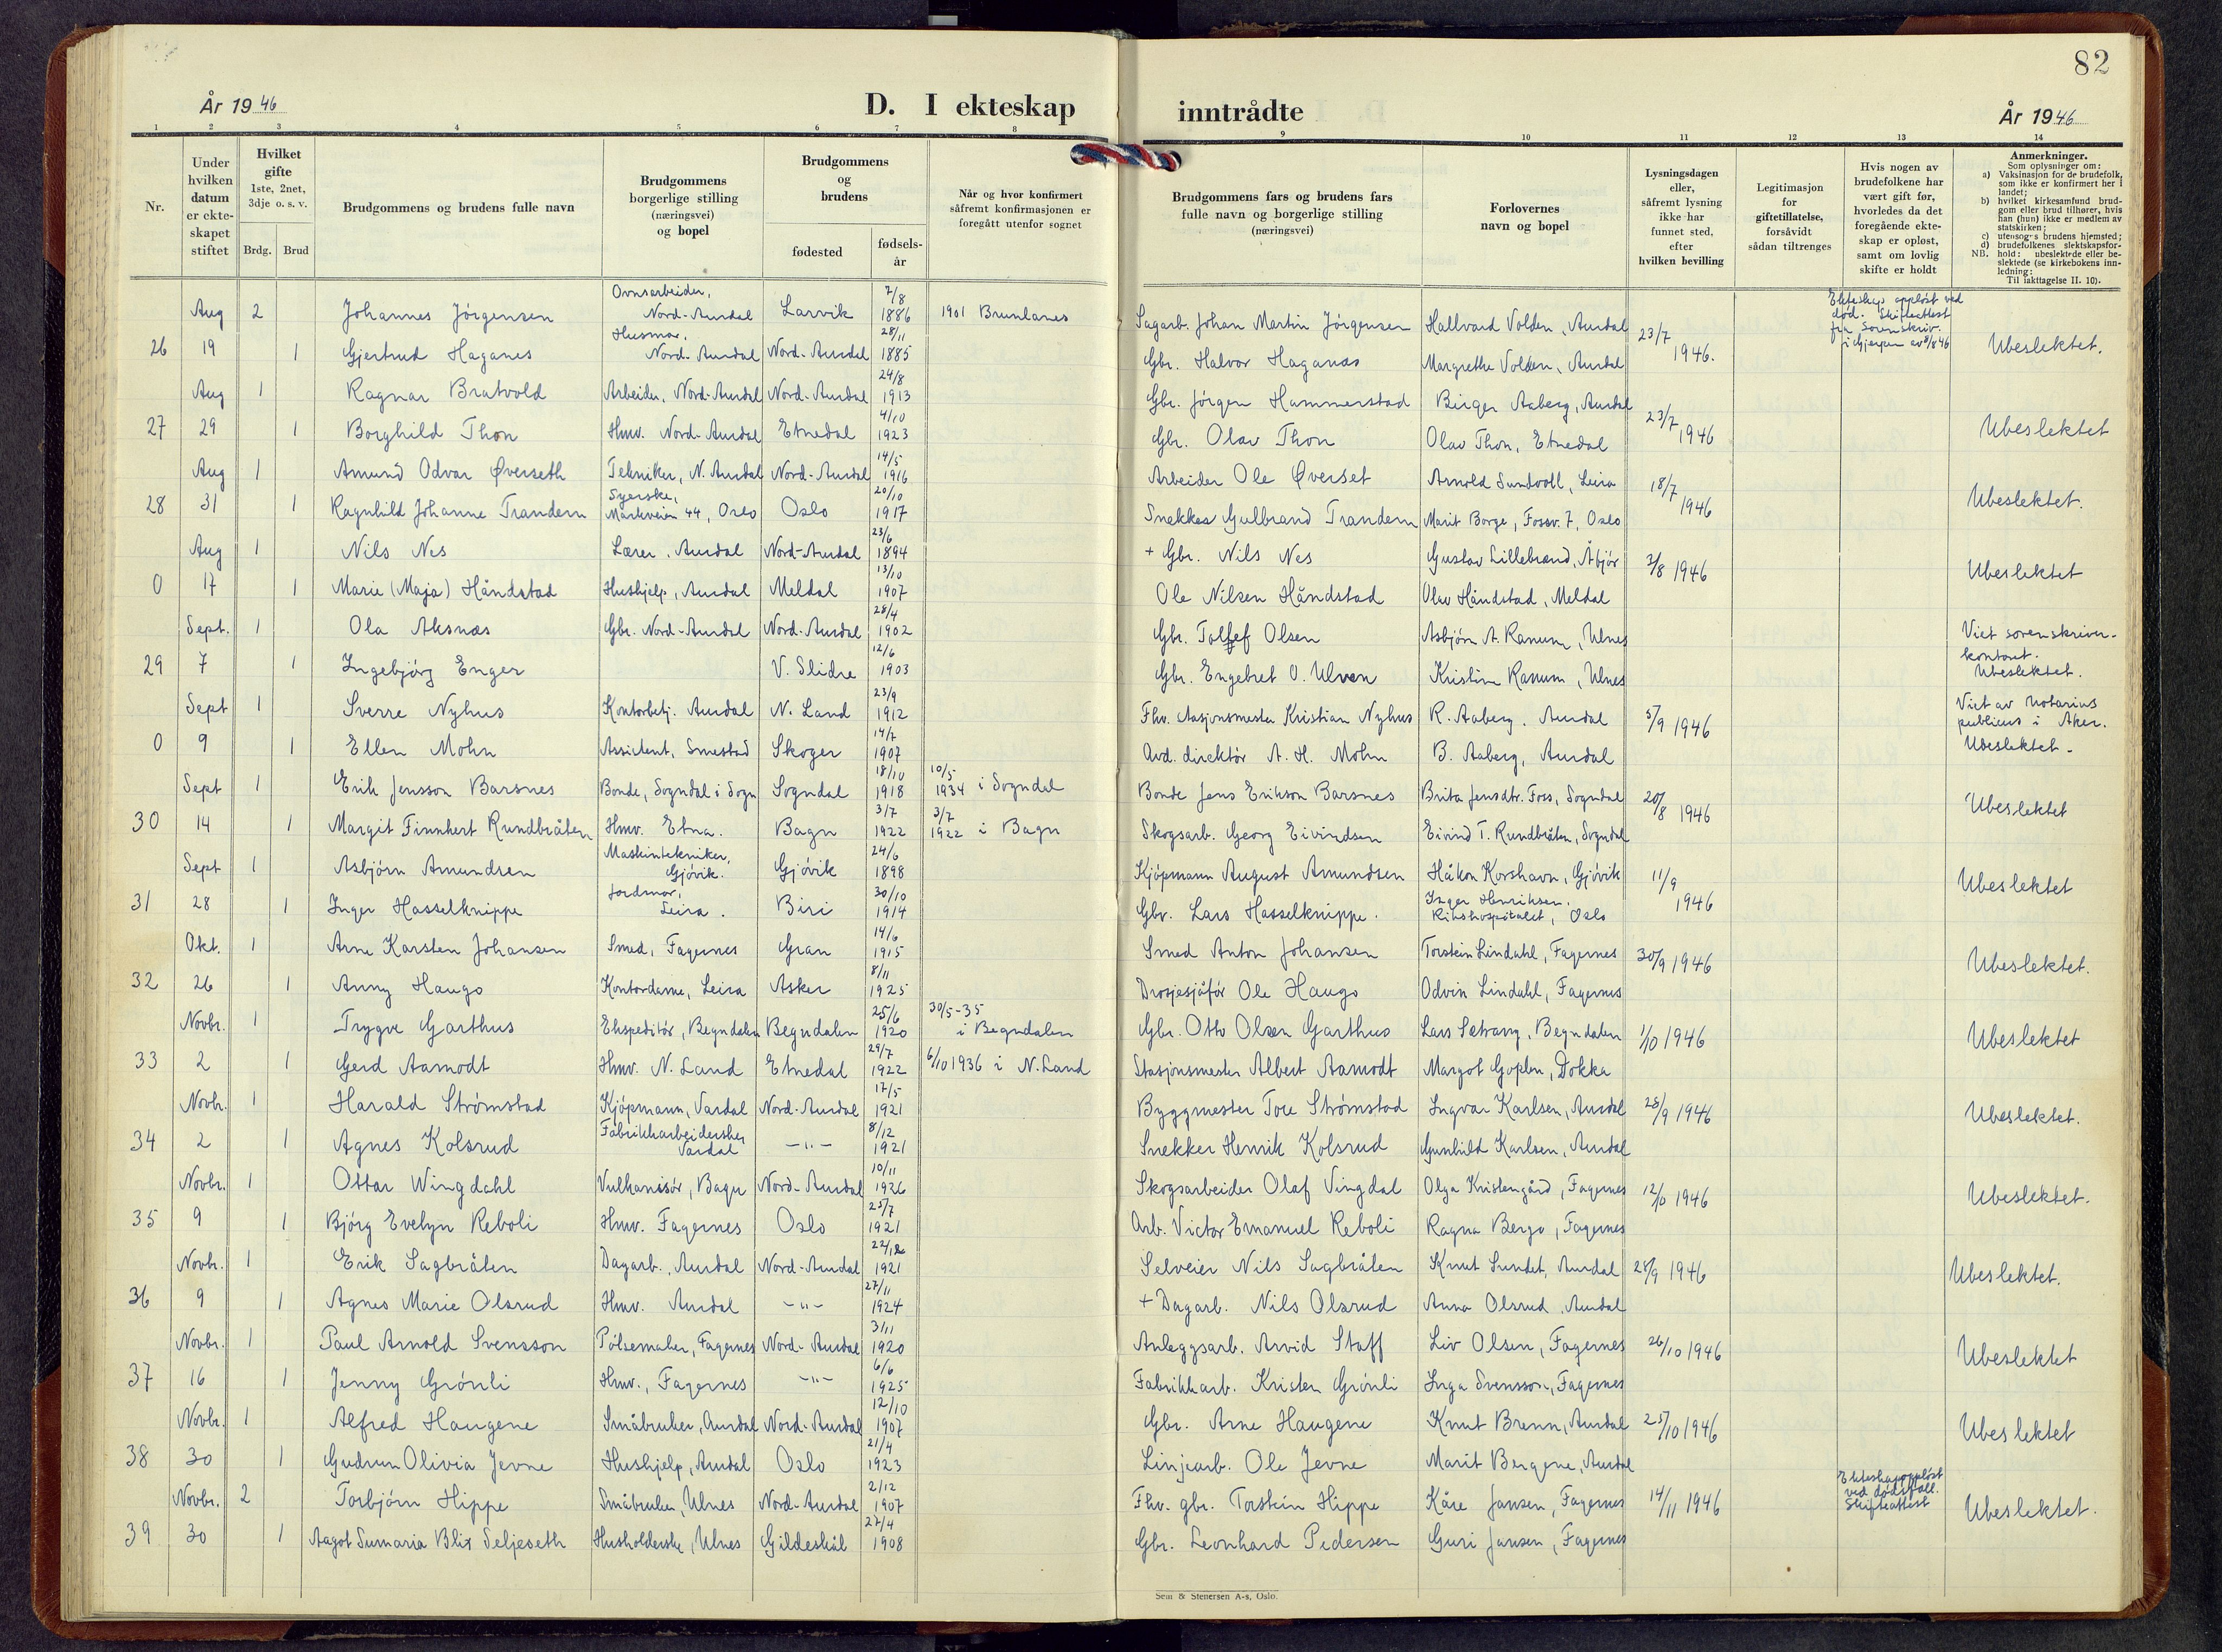 82
År 1946
D. I ekteskap inntrådte
År 1946
1 2 3 4 5 6 7 8 9 10 11 12 13 14
Nr.
Under hvilken datum er ekteskapet stiftet
Hvilket gifte 1ste, 2net, 3dje o. s. v.
Brdg. Brud
Brudgommens og brudens fulle navn
Brudgommens borgerlige stilling (næringsvei) og bopel
Brudgommens og brudens
fødested
fødselsår
Når og hvor konfirmert såfremt konfirmasjonen er foregått utenfor sognet
Brudgommens fars og brudens fars fulle navn og borgerlige stilling (næringsvei)
Forlovernes navn og bopel
Lysningsdagen eller, såfremt lysning ikke har funnet sted, efter hvilken bevilling
Legitimasjon for giftetillatelse, forsåvidt sådan tiltrenges
Hvis nogen av brudefolkene har vært gift før, hvorledes da det foregående ekteskap er opløst, samt om lovlig skifte er holdt
Anmerkninger.
Som oplysninger om:
a) Vaksinasjon for de brudefolk, som ikke er konfirmert her i landet;
b) hvilket kirkesamfund brudgom eller brud tilhører, hvis han (hun) ikke er medlem av statskirken;
c) utensogns brudens hjemsted;
d) brudefolkenes slektskapsforhold: ubeslektede eller beslektede (se kirkebokens innledning:
NB.
Til iakttagelse II. 10).
Aug 2 Johannes Jörgensen Ovnsarbeider, Nord-Aurdal Larvik 7/8 1886 1901 Brunlanes Sagarb. Johan Martin Jörgensen Hallvard Volden, Aurdal 23/7 1946. Ekteskap opplöst ved död. Skifteattest fra sorenskriv. i Gjerpen av 8/8 46
26 19 1 Gjertrud Haganes Husmor, Nord-Aurdal Nord-Aurdal 28/11 1885 Gbr. Halvor Haganes Margrethe Volden, Aurdal Ubeslektet.
Aug 1 Ragnar Bratvold Arbeider, Nord-Aurdal Nord-Aurdal 24/8 1913 Gbr. Jörgen Hammerstad Birger Aaberg, Aurdal 23/7 1946
27 29 1 Borghild Thon Hmv. Nord-Aurdal Etnedal 4/10 1923 Gbr. Olav Thon Olav Thon, Etnedal Ubeslektet
Aug 1 Amund Odvar Øverseth Tekniker, N. Aurdal Nord-Aurdal 14/5 1916 Arbeider Ole Øverset Arnold Sundvoll, Leira 18/7 1946
28 31 1 Ragnhild Johanne Trandem Syerske, Markveien 44, Oslo Oslo 20/10 1917 Snekker Gulbrand Trandem Marit Borge, Fossv. 7, Oslo Ubeslektet.
Aug 1 Nils Nes Lærer, Aurdal Nord-Aurdal 23/6 1894 + Gbr. Nils Nes Gustav Lillebrand, Åbjör 3/8 1946
0 17 1 Marie (Maja) Håndstad Hushjelp, Aurdal Meldal 13/10 1907 Ole Nilsen Håndstad Olav Håndstad, Meldal Ubeslektet
Sept. 1 Ola Aksnes Gbr. Nord-Aurdal Nord-Aurdal 28/4 1902 Gbr. Tollef Olsen Asbjörn A. Ranum, Ulnes Viet sorenskriver-kontoret.
29 7 1 Ingebjörg Enger V. Slidre 12/6 1903 Gbr. Engebret O. Ulven Kristine Ranum, Ulnes Ubeslektet.
Sept 1 Sverre Nyhus Kontorbetj. Aurdal N. Land 23/9 1912 Fhv. stasjonsmester Kristian Nyhus R. Aaberg. Aurdal 5/9 1946 Viet av notarius publicus i Aker.
0 9 1 Ellen Mohn Assistent, Smestad Skoger 14/7 1907 Avd. direktör A. H. Mohn B. Aaberg, Aurdal Ubeslektet.
Sept 1 Erik Jensson Barsnes Bonde, Sogndal i Sogn Sogndal 18/10 1918 10/5 1934 i Sogndal Bonde Jens Erikson Barsnes Brita Jensdtr. Foss, Sogndal 20/8 1946
30 14 1 Margit Finnhert Rundbråten Hmv. Etna. Bagn 3/7 1922 3/7 1922 i Bagn Skogsarb. Georg Eivindsen Eivind T. Rundbråten, Sogndal Ubeslektet
Sept 1 Asbjörn Amundsen Maskintekniker, Gjövik. Gjövik 24/6 1898 Kjöpmann August Amundsen Håkon Korshavn, Gjövik 11/9 1946
31 28 1 Inger Hasselknippe Jordmor, Leira. Biri 30/10 1914 Gbr. Lars Hasselknippe. Inger Henriksen, Rikshospitalet, Oslo Ubeslektet
Okt. 1 Arne Karsten Johansen Smed, Fagernes Gran 14/6 1915 Smed Anton Johansen Torstein Lindahl, Fagernes 30/9 1946
32 26 1 Anny Haugo Kontordame, Leira Asker 8/11 1925 Drosjesjåför Ole Haugo Odvin Lindahl, Fagernes Ubeslektet.
Novbr. 1 Trygve Garthus Ekspeditör, Begndalen Begndalen 25/6 1920 30/5-35 i Begndalen Gbr. Otto Olsen Garthus Lars Sætrang, Begndalen 1/10 1946
33 2 1 Gerd Aamodt Hmv. N. Land Etnedal 29/7 1922 6/10 1936 i N. Land Stasjonsmester Albert Aamodt Margot Goplen, Dokka Ubeslektet
Novbr. 1 Harald Strömstad Kjöpmann, Vardal Nord-Aurdal 17/5 1921 Byggmester Tore Strömstad Ingvar Karlsen, Aurdal 28/9 1946
34 2 1 Agnes Kolsrud Fabrikkarbeiderske Vardal -"- 8/12 1921 Snekker Henrik Kolsrud Gunhild Karlsen, Aurdal Ubeslektet.
Novbr. 1 Ottar Wingdahl Vulkanisör, Bagn Nord-Aurdal 10/11 1926 Skogsarbeider Olaf Vingdal Olga Kristengård, Fagernes 12/10 1946
35 9 1 Björg Evelyn Reboli Hmv. Fagernes Oslo 25/7 1921 Arb. Victor Emanuel Reboli Ragna Bergo, Fagernes Ubeslektet.
Novbr. 1 Erik Sagbråten Dagarb., Aurdal Nord-Aurdal 22/12 1921 Selveier Nils Sagbråten Knut Sundet, Aurdal 28/9 1946
36 9 1 Agnes Marie Olsrud Hmv. Aurdal -"- 27/11 1924 + Dagarb. Nils Olsrud Anna Olsrud, Aurdal Ubeslektet.
Novbr. 1 Paul Arnold Svensson Pölsemaker, Fagernes Nord-Aurdal 3/11 1920 Anleggsarb. Arvid Staff Liv Olsen, Fagernes 26/10 1946
37 16 1 Jenny Grönli Hmv., Fagernes -"- 6/6 1925 Fabrikkarb. Kristen Grönli Inga Svensson, Fagernes Ubeslektet
Novbr. 1 Alfred Haugene Småbruker, Aurdal Nord-Aurdal 12/10 1907 Gbr. Arne Haugene Knut Brenn, Aurdal 25/10 1946
38 30 1 Gudrun Olivia Jevne Hushjelp, Aurdal Oslo 21/4 1923 Linjearb. Ole Jevne Marit Bergene, Aurdal Ubeslektet
Novbr. 2 Torbjörn Hippe Småbruker, Ulnes Nord-Aurdal 2/12 1907 Fhv. gbr. Torstein Hippe Kåre Jansen, Fagernes 14/11 1946 Ekteskap opplöst ved dödsfall. Skifteattest
39 30 1 Aagot Sumaria Blix Seljeseth Husholderske, Ulnes Gildeskål 27/4 1908 Gbr. Leonhard Pedersen Guri Jansen, Fagernes Ubeslektet.
Sem & Stenersen A-s, Oslo.